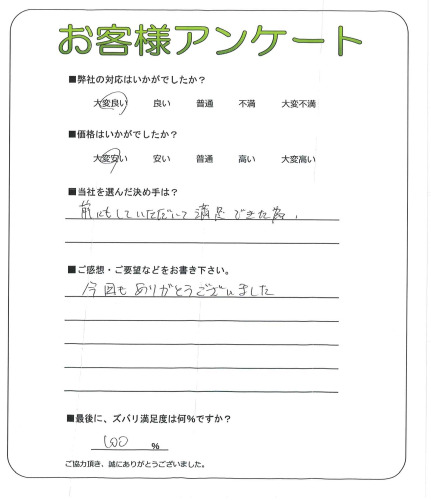 お客様アンケート
■弊社の対応はいかがでしたか？
大変良い 良い 普通 不満 大変不満
■価格はいかがでしたか？
大変安い 安い 普通 高い 大変高い
■当社を選んだ決め手は？
前にもしていただいて満足できた為、
■ご感想・ご要望などをお書き下さい。
今回もありがとうございました
■最後に、ズバリ満足度は何%ですか？
100 %
ご協力頂き、誠にありがとうございました。